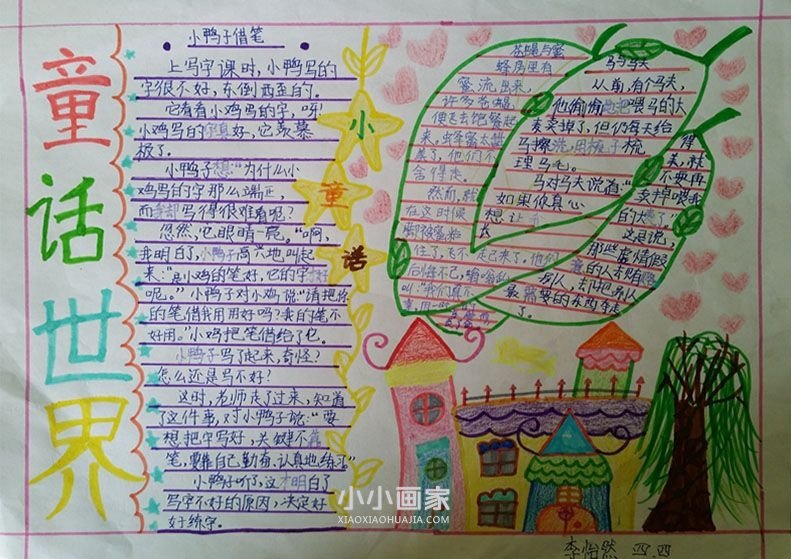 童话世界
小鸭子借笔
上写字课时，小鸭写的
字很不好，东倒西歪的。
它看看小鸡写的字，呀！
小鸡写的字真好，它羡慕
极了。
小鸭子想：“为什么小
鸡写的字那么端正，
而我却写得很难看呢？
忽然，它眼睛一亮。“啊，
我明白了，小鸭子高兴地叫起
来：“是小鸡的笔好，它的字才好
呢。”小鸭子对小鸡说：“请把你
的笔借我用用好吗？我的笔不
好用。”小鸡把笔借给了它。
小鸭子写了起来，奇怪？
怎么还是写不好？
这时，老师走了过来，知道
了这件事，对小鸭子说：“要
想把字写好，关键不靠
笔，要靠自己勤奋、认真地练习。”
小鸭子听了，这才明白了
写字不好的原因，决定好
好练字。
小
童
话
苍蝇与蜜
蜂房里有
蜜流出来，
许多苍蝇
便飞去饱餐起
来，蜂蜜太甜
美了，他们不
舍得走。
然而，就
在这时候
脚被蜜粘
住了，飞不走起来了。他们
后悔不已，嗡嗡乱
叫：“我们真不
马与马夫
从前，有个马夫，
他偷偷地把喂马的大
麦卖掉了，但仍每天给
马擦洗，用梳子梳
理马毛。
马对马夫说道：“
如果你真心
想让我
长
得
美，就
不要再
卖掉喂我
的大麦了”
这是说，
那些虚情假
意的人去贿赂
别人，却把别人
最需要的东西夺走
了。
小小画家
XIAOXIAOHUAJIA.COM
李怡然 四.四